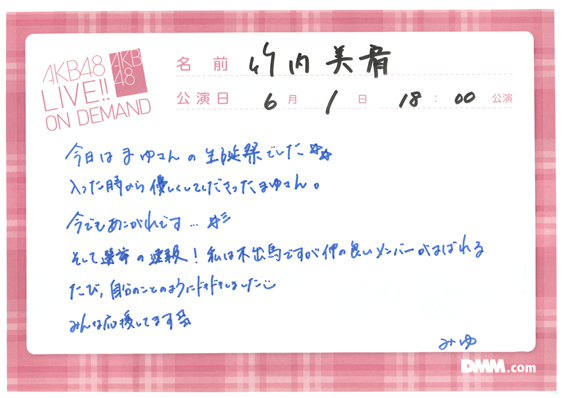 AKB48
LIVE!!
ON DEMAND
AKB
48
名前 竹内美宥
公演日 6月 1日 18:00公演
今日はまゆさんの生誕祭でした☆☆
入った時から優しくしてくださったまゆさん。
今でもあこがれです…☆彡
そして選挙の速報！私は不出馬ですが仲の良いメンバーがよばれる
たび、自分のことのようにドキドキしました
みんな応援してます
みゆ
DMM.com